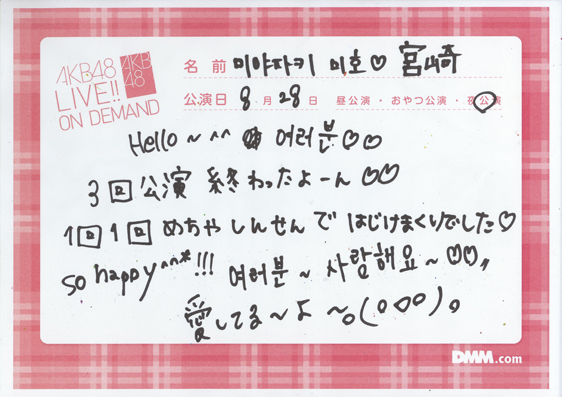 AKB48
LIVE!!
ON DEMAND
AKB
48
名前 미야자키 미호♡ 宮崎
公演日 8月28日 昼公演・おやつ公演・夜公演
Hello~^^ 여러분♡♡
3回公演 終わったよーん♡♡
1回1回めちゃしんせんではじけまくりでした♡
so happy^^*!!! 여러분~사랑해요~♡♡"
愛してる~よ~。(○○○)。
DMM.com